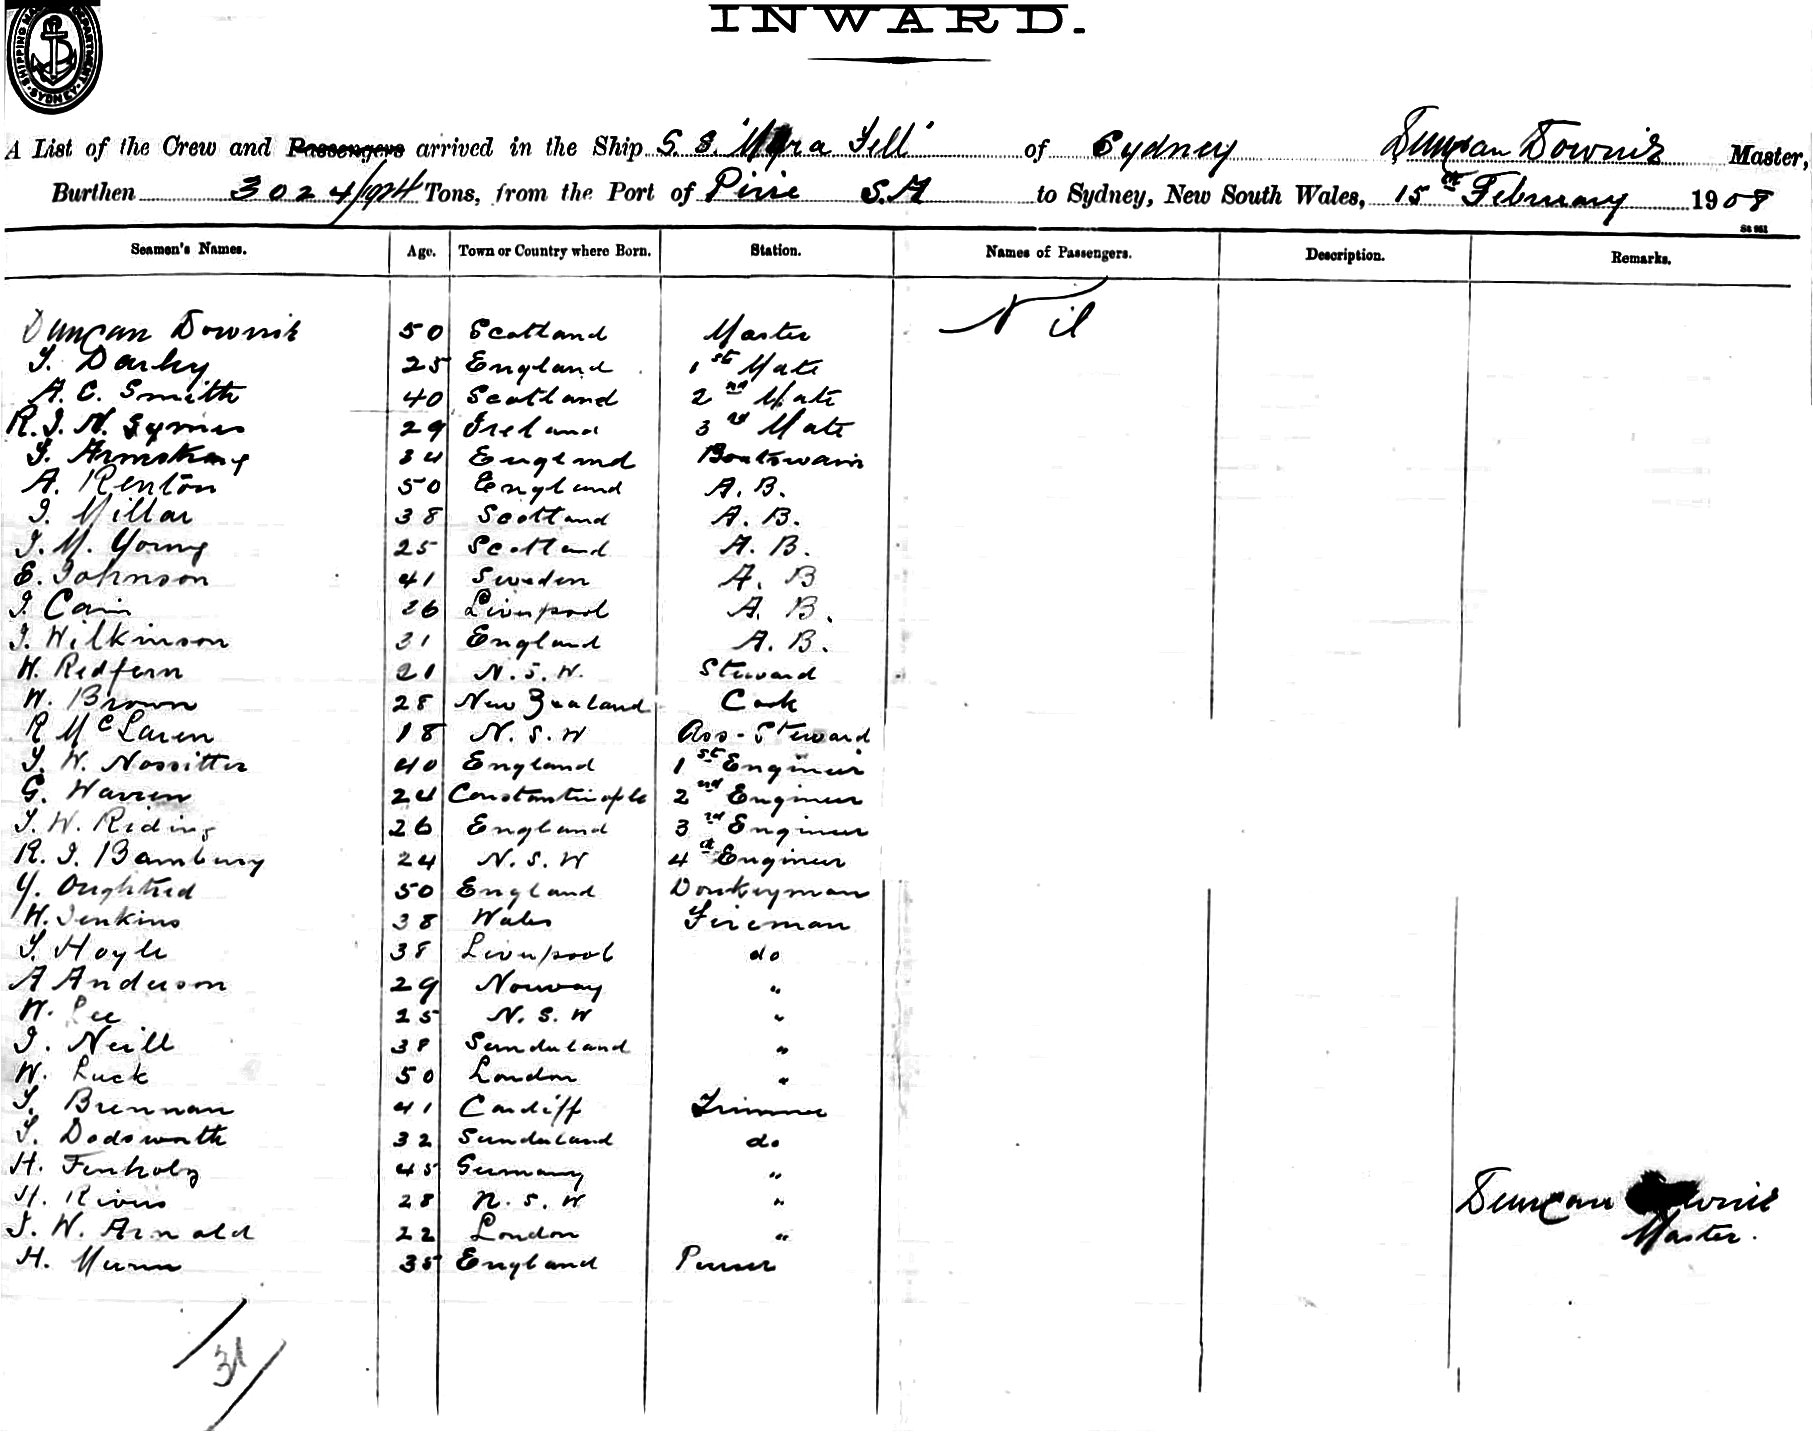 SHIPPING MASTER'S DEPARTMENT SYDNEY
INWARD.
A List of the Crew and Passengers arrived in the Ship S. S. "Myra Fell" of Sydney Duncan Downie Master,
Burthen 3024/1924 Tons, from the Port of Pirie S.A to Sydney, New South Wales, 15th February 1908
Seamen's Names. Age. Town or Country where Born. Station. Names of Passengers. Description. Remarks.
Duncan Downie 50 Scotland Master Nil
T. Darby 25 England 1st Mate
A. C. Smith 40 Scotland 2nd Mate
R. J. N. Symes 29 Ireland 3rd Mate
T. Armstrong 34 England Boatswain
A. Renton 50 England A. B.
J. Millar 38 Scotland A. B.
J. M. Young 25 Scotland A. B.
E. Johnson 41 Sweden A. B
J. Cain 26 Liverpool A. B.
J. Wilkinson 31 England A. B.
W. Redfern 21 N. S. W. Steward
W. Brown 28 New Zealand Cook
R McLaren 18 N. S. W Ass-Steward
T. W. Nossitter 40 England 1st Engineer
G. Warren 24 Constantinople 2nd Engineer
T. W. Riding 26 England 3rd Engineer
R. J. Bambury 24 N. S. W 4th Engineer
Y. Oughtred 50 England Donkeyman
W. Jenkins 38 Wales Fireman
T. Hoyle 38 Liverpool do
A Anderson 29 Norway "
W. Lee 25 N. S. W "
J. Neill 38 Sunderland "
W. Luck 50 London "
T. Brennan 41 Cardiff Trimmer
T. Dodsworth 32 Sunderland do
H. 45 Germany "
H. Rivers 28 N. S. W "
J. W. Arnold 22 London "
H. Munn 35 England Purser
Duncan Downie
Master.
31